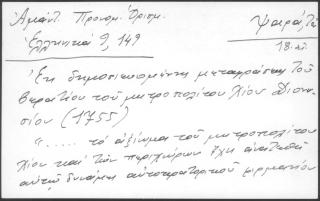 Ἀμάντ. Προνομ. Ὁρισμ.
Ἑλληνικά 9, 149
Ψαρά, τά
18. αἰ.
Ἐκ δημοσιευομένης μεταφράσεως τοῦ
βερατίου τοῦ μητροπολίτου Χίου Διονυ-
σίου (1755)
"..... τό ἀξίωμα τοῦ μητροπολίτου
Χίου καί τῶν περιχώρων ἔχει ἀνατεθῆ
αὐτῷ δυνάμει αὐτοκρατορικοῦ φιρμανίου